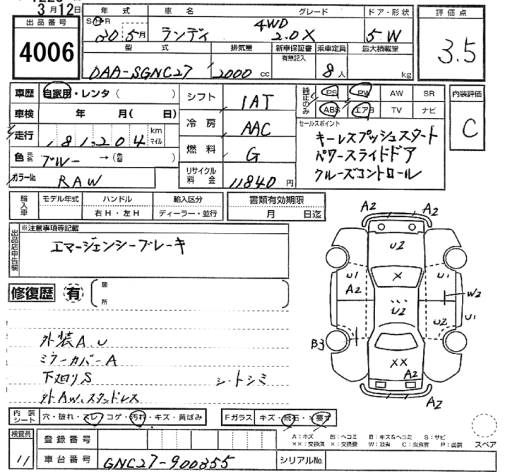 3月12日
出品番号
4006
年式 グレード ドア・形状
S H R 20. 5月 ランディ 4WD 2.0X 5W
型式 排気量 新車保証書 乗車定員 最大積載量
有無記入
DAA-SGNC27 2000 cc 8人 kg
評価点
3.5
車歴 自家用・レンタ( )
車検 年 月( 日)
走行 181,204 km マイル
色 ブルー → (替)
カラーNo RAW
シフト IAT
冷房 AAC
燃料 G
リサイクル料金 11840円
純正のみ PS PW AW SR
ABS エアB TV ナビ
セールスポイント
キーレスプッシュスタート
パワースライドドア
クルーズコントロール
内装評価
C
輸入車 モデル年式 ハンドル 輸入区分 書類有効期限
右H・左H ディーラー・並行 月 日迄
出品店申告欄
※注意事項等記載
エマージェンシーブレーキ
修復歴 有 箇所
外装A.U
ミラーカバーA
下廻りS シートシミ
外AW、スタッドレス
A2
A2
U2
U1 U1
A2 X W2
U2
U1
U2
B3
XX
A2
A2
内装シート 穴・破れ・スレ・コゲ・汚れ・キズ・黄ばみ
Fガラス キズ・飛石・
スペア
A:キズ U:ヘコミ B:キズ&ヘコミ S:サビ
検査員 11
登録番号
車台番号 GNC27-900355
シリアルNo